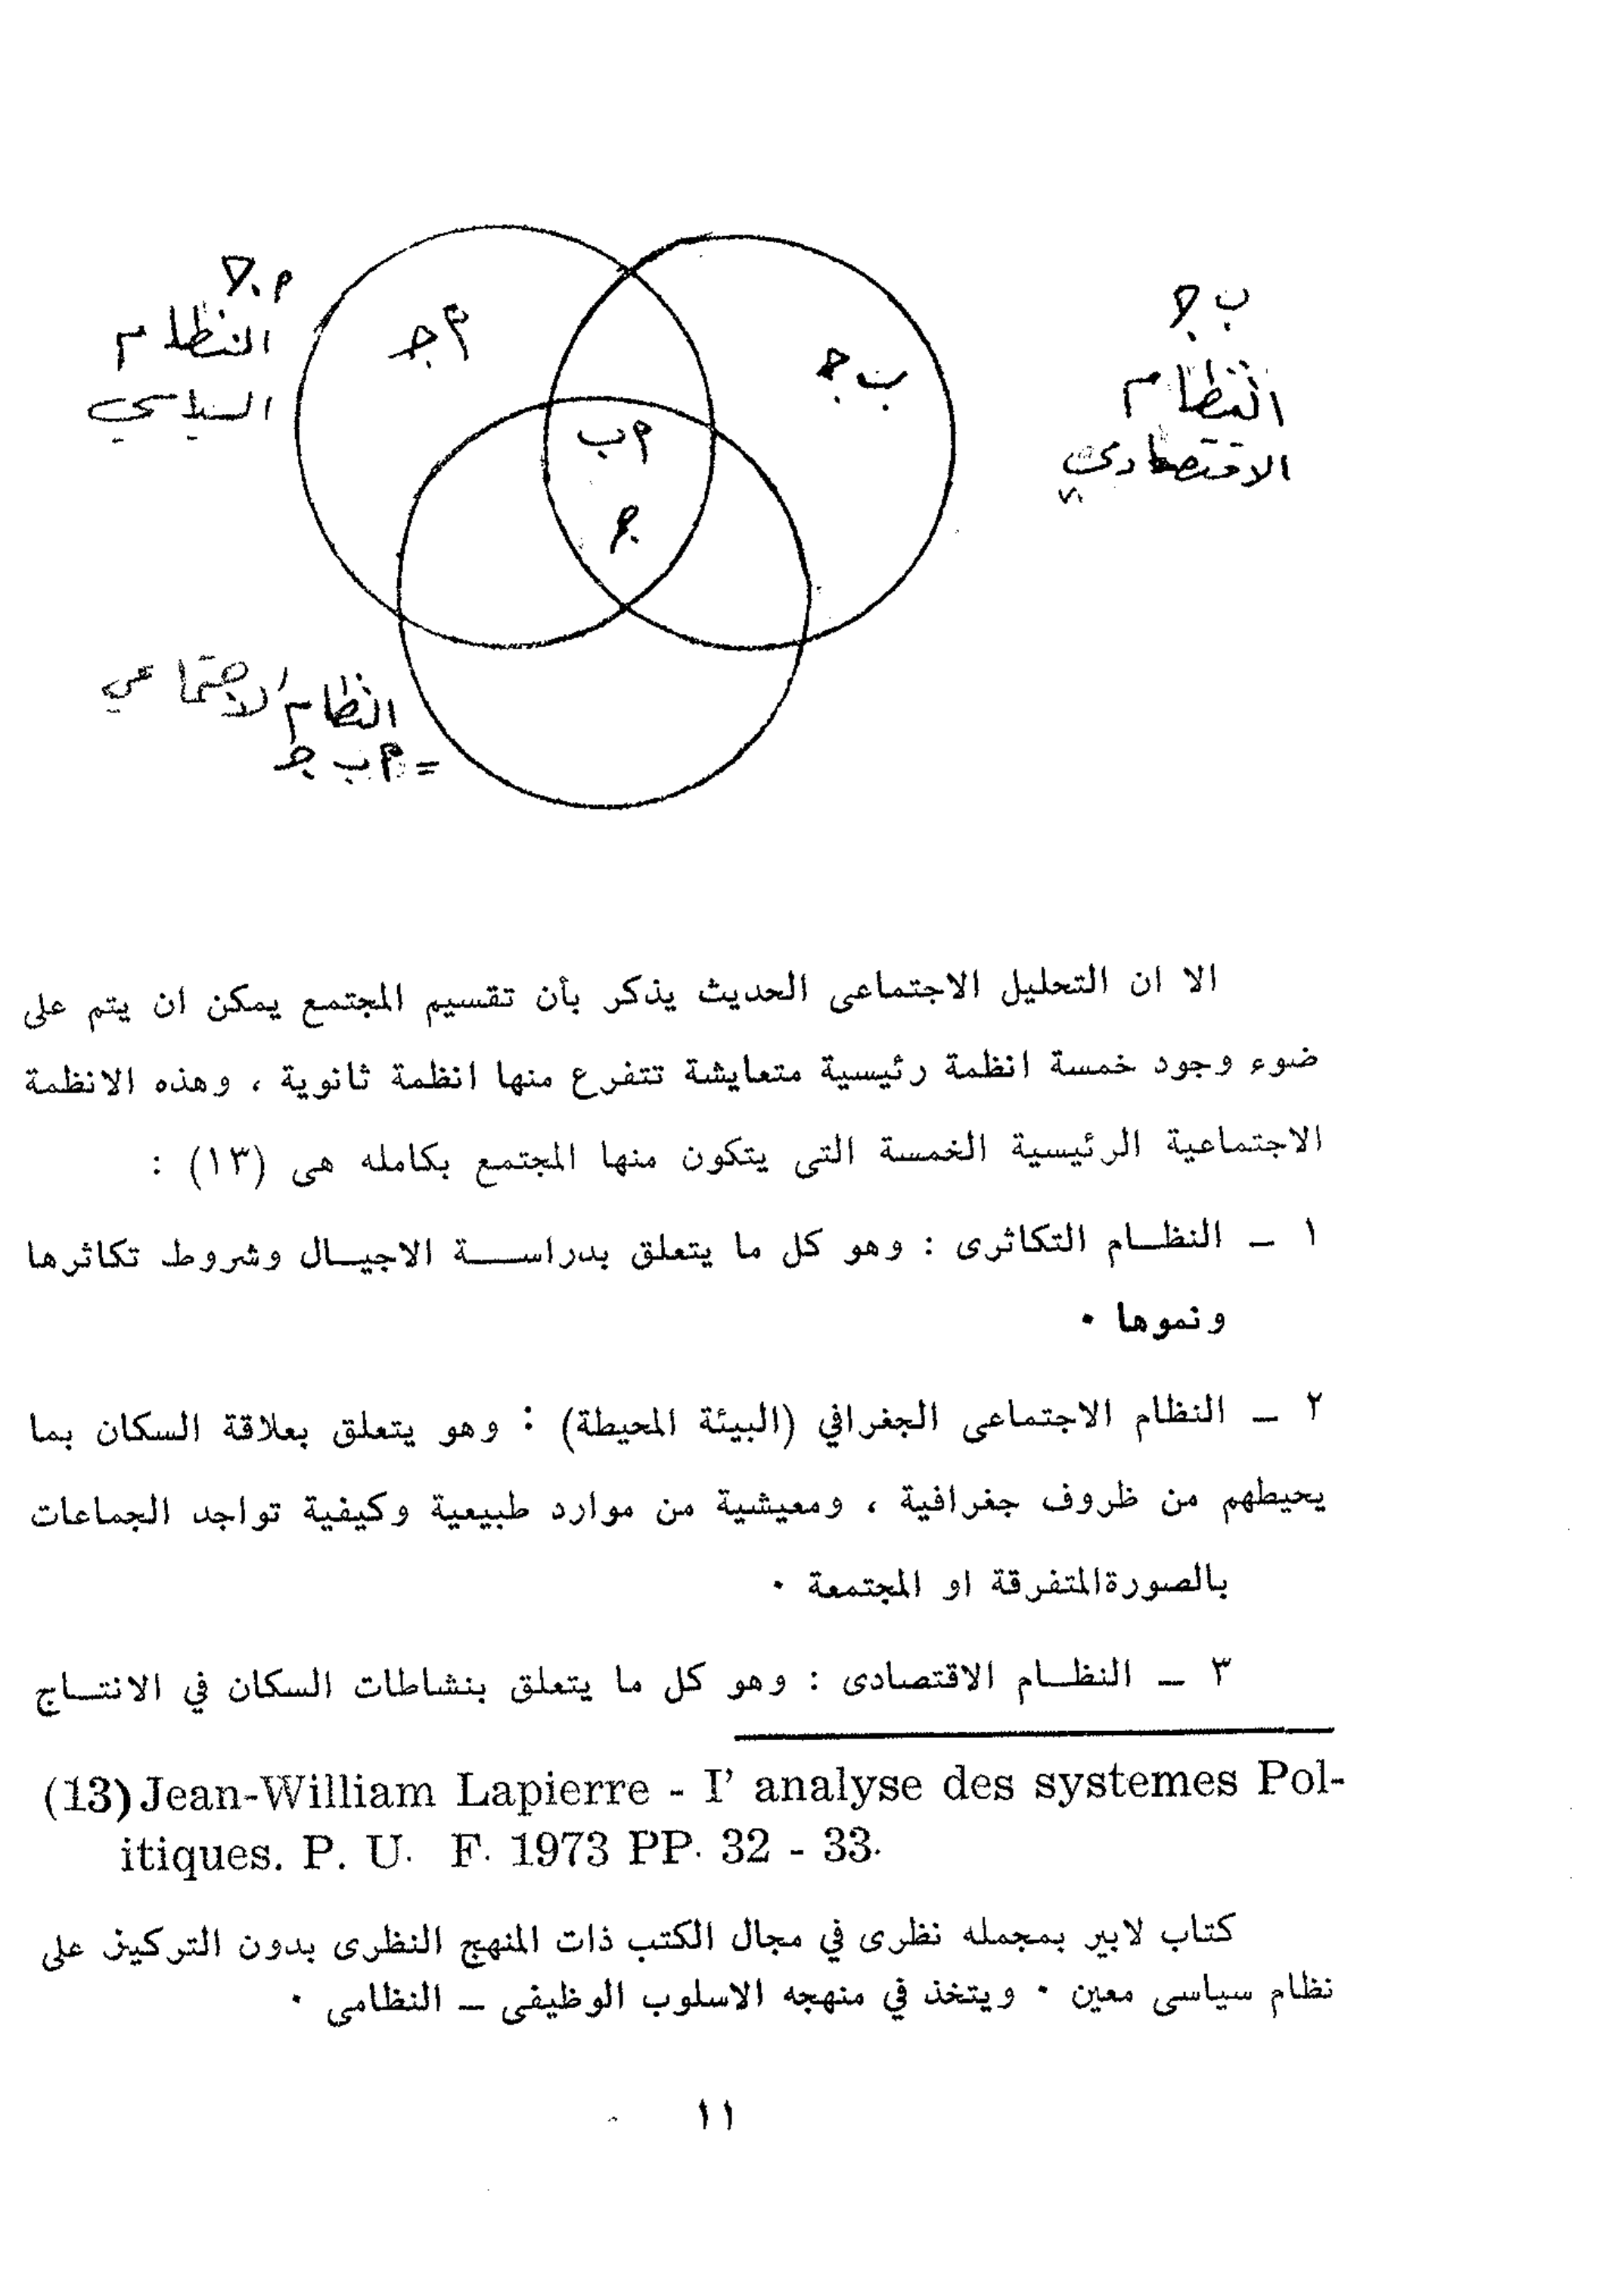 ب ج
النظام
الاقتصادي
النظام
السياسي
أ ج
ب ج
أ ب
ج
النظام الاجتماعي
= أ ب ج
الا ان التحليل الاجتماعى الحديث يذكر بأن تقسيم المجتمع يمكن ان يتم على
ضوء وجود خمسة انظمة رئيسية متعايشة تتفرع منها انظمة ثانوية ، وهذه الانظمة
الاجتماعية الرئيسية الخمسة التى يتكون منها المجتمع بكامله هى (١٣) :
١ ــ النظــام التكاثرى : وهو كل ما يتعلق بدراســـة الاجيــال وشروط تكاثرها
ونموها ٠
٢ ــ النظام الاجتماعى الجغرافي (البيئة المحيطة) : وهو يتعلق بعلاقة السكان بما
يحيطهم من ظروف جغرافية ، ومعيشية من موارد طبيعية وكيفية تواجد الجماعات
بالصورةالمتفرقة او المجتمعة ٠
٣ ــ النظــام الاقتصادى : وهو كل ما يتعلق بنشاطات السكان في الانتــاج
(13) Jean-William Lapierre - I' analyse des systemes Pol-
itiques. P. U. F. 1973 PP. 32 - 33.
كتاب لابير بمجمله نظرى في مجال الكتب ذات المنهج النظرى بدون التركيز على
نظام سياسى معين ٠ ويتخذ في منهجه الاسلوب الوظيفى ــ النظامى ٠
١١